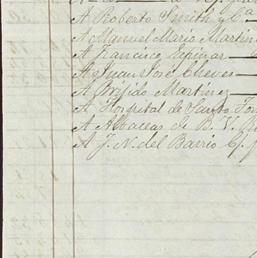 A Roberto Smith y Cª
A Manuel Maria Martin
A Francisco Espinar
A Juan José Chever
A Brijido Martinez
A Hospital de Santo To
A Albaceas de B. V.
A J. N. del Barrio C.